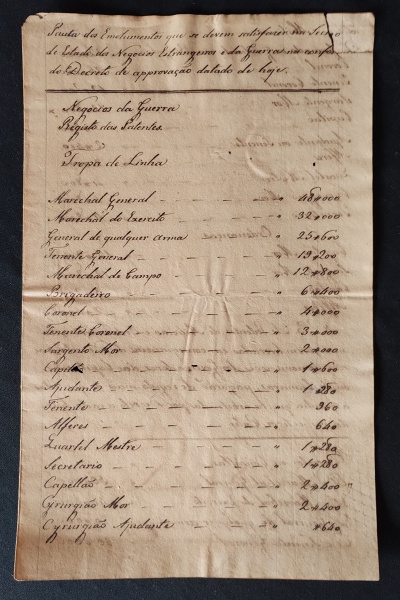 Pauta dos Emolumentos que se devem satisfazer na Secre
de Estado dos Negocios Estrangeiros e da Guerra na confor
do Decreto de approvação datado de hoje.
Negocios da Guerra
Registo das Patentes
Tropa de Linha
Marechal General — — — — " 48$000
Marechal do Exercito — — — — " 32$000
General de qualquer Arma — — — " 25$600
Tenente General — — — — " 19$200
Marechal de Campo — — — — " 12$800
Brigadeiro — — — — " 6$400
Coronel — — — — " 4$000
Tenente Coronel — — — — " 3$000
Sargento Mor — — — — " 2$000
Capitão — — — — " 1$600
Ajudante — — — — " 1$280
Tenente — — — — " 960
Alferes — — — — " 640
Quartel Mestre — — — — " 1$280
Secretario — — — — " 1$280
Capellão — — — — " 2$400 "
Cyrurgião Mor — — — — " 2$400
Cyrurgião Ajudante — — — " $640